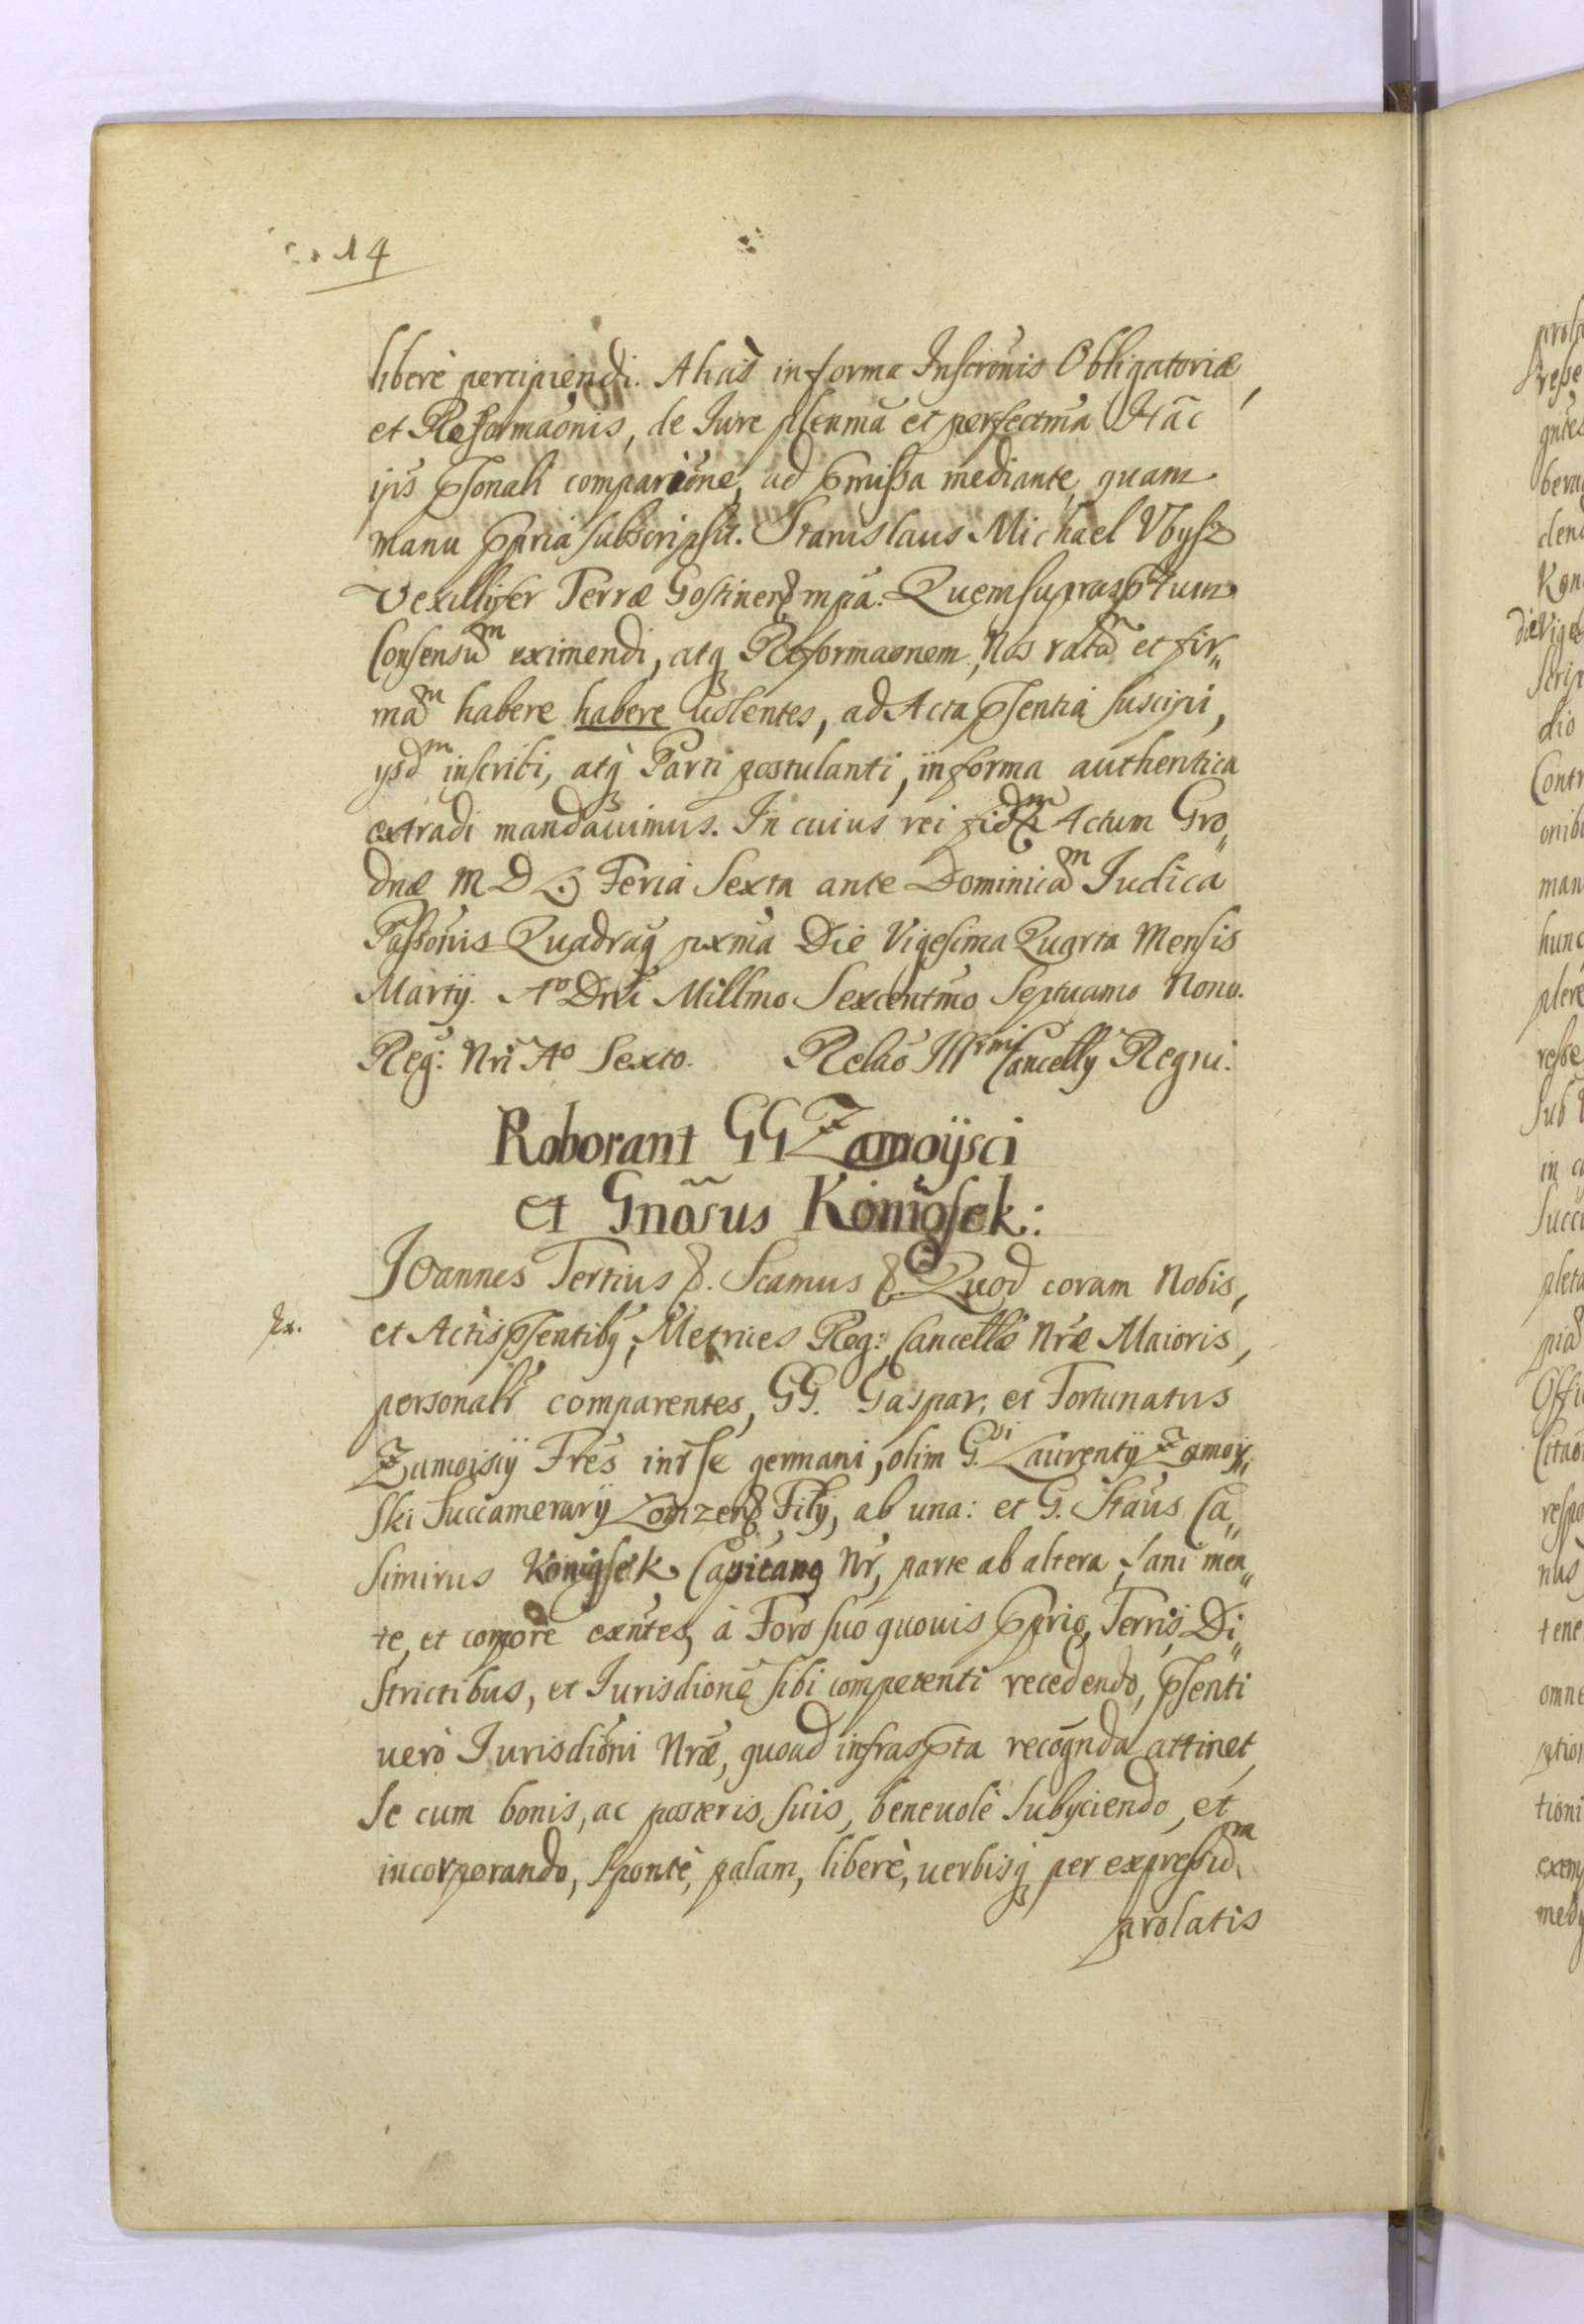 14
liberè percipiendi. Alias in forma Inscrönis Obligatoriæ,
et Reformaönis, de Iure plenmã et perfectmã Hãc
ijs psonali compariöne, ad pmissa mediante, quam
manu ppria subscripsit. Stanislaus Michael Vbysz
Vexillifer Terræ Gostinen mpã. Quem suprasptum
Consensum eximendi, atq Reformaonem, Nos ratam et fir„
mam habere habere uolentes, ad Acta psentia suscipi,
ysdm inscribi, atq Parti postulanti, in forma authentica
extradi mandauimus. In cuius rei fidem Actum Gro„
dnæ M D L Feria Sexta ante Dominicam Iudica
Passönis Quadrag pxmã Die Vigesima Quarta Mensis
Martij. Ao Dni Millmo Sexcentmo Septuamo Nono.
Reg: Nri Ao Sexto. Relaö Illrmi Cancellij Regni.
Roborant GG Zamoijsci
et Gnõsus Königsek:
Joannes Tertius &. Scamus &. Quod coram Nobis,
Ex.
et Actis psentiby, Metrices Reg: Cancellæ Nræ Maioris,
personalr comparentes, GG. Gaspar, et Fortunatus
Zamoiscij Fres intr se germani, olim G.si Laurentij Zamoij„
ski Succamerarij Lomzen Filij, ab una: et G. Staus Ca„
simirus Königsek Capitang Nr, parte ab altera, sani men„
te, et corpore exntes, à Foro suo quouis pprio, Terris, Di„
strictibus, et Iurisdione sibi competenti recedendo, psenti
uerò Iurisdiöni Nræ, quoad infraspta recognda attinet,
se cum bonis, ac posteris suis, beneuolè subijciendo, et
incorporando, sponte, palam, liberè, uerbisq per expressum
prolatis